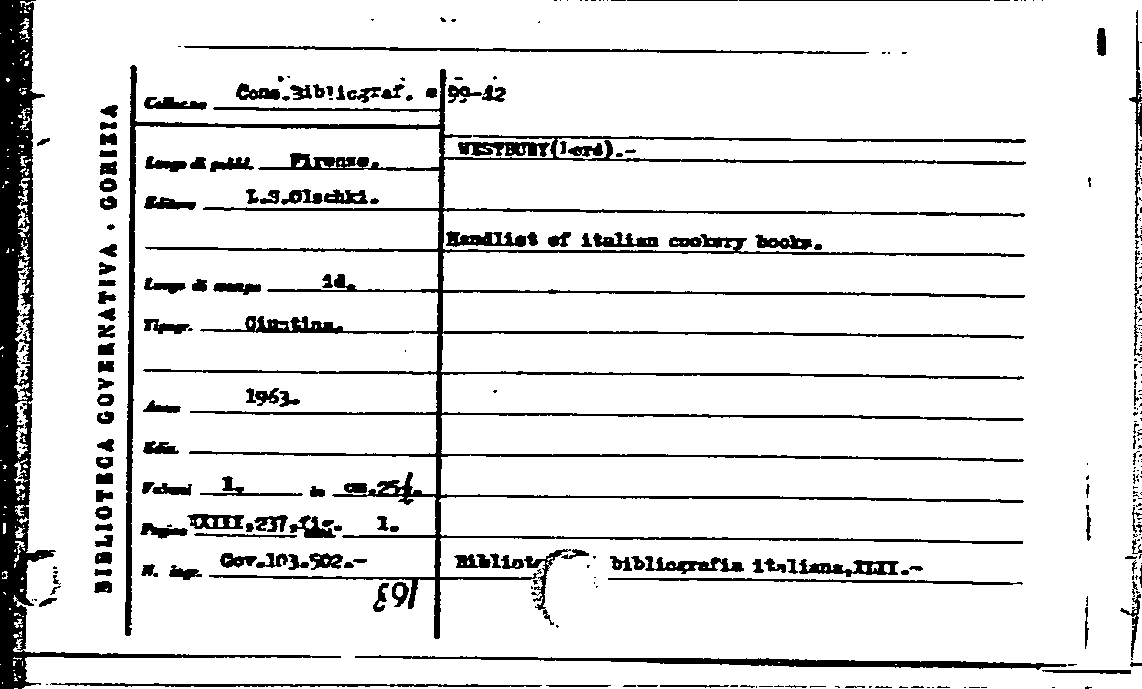 BIBLIOTECA GOVERNATIVA · GORIZIA
Collocaz. Cons.Bibliograf. e 99-42
WESTBURY(Lord).-
Luogo di pubbl. Firenze.
Editore L.S.Olschki.
Handlist of italian cookery books.
Luogo di stampa id.
Tipogr. Giuntina.
Anno 1963.
Ediz.
Volumi 1. in cm.25½.
Pagine 237,fig. 1.
N. ingr. Gov.103.502.- Bibliot bibliografia italiana,
163